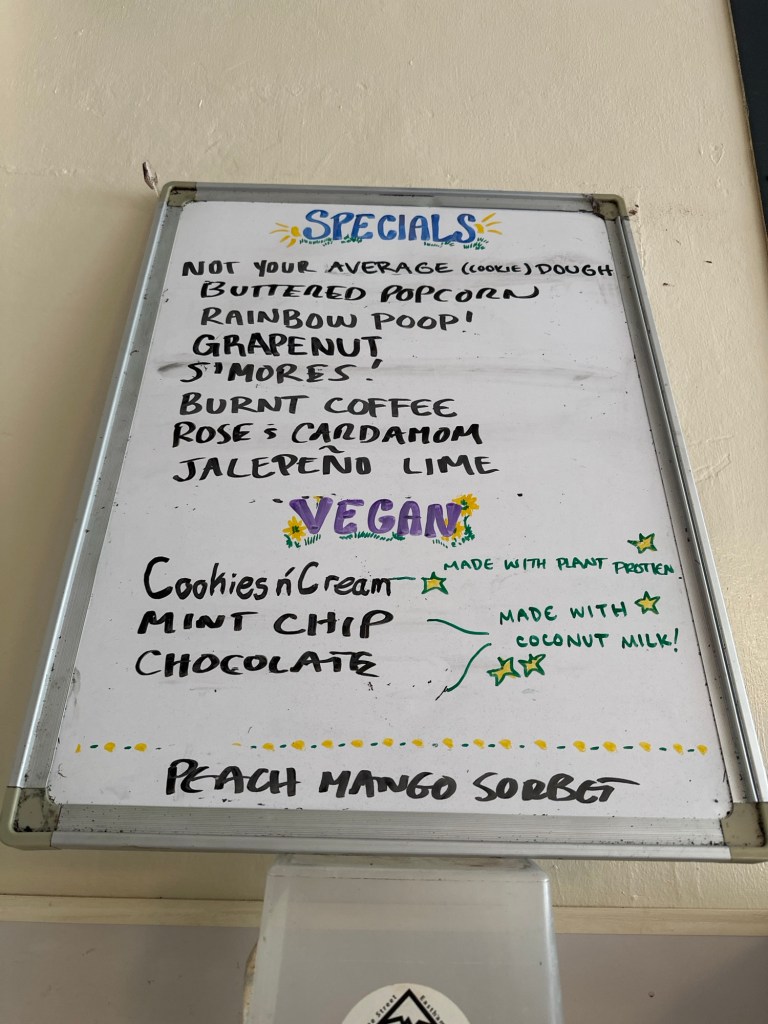 SPECIALS
NOT YOUR AVERAGE (COOKIE) DOUGH
BUTTERED POPCORN
RAINBOW POOP!
GRAPENUT
S'MORES!
BURNT COFFEE
ROSE & CARDAMOM
JALEPEÑO LIME
VEGAN
Cookies n' Cream
MADE WITH PLANT PROTIEN
MINT CHIP
MADE WITH
COCONUT MILK!
CHOCOLATE
PEACH MANGO SORBET
Street